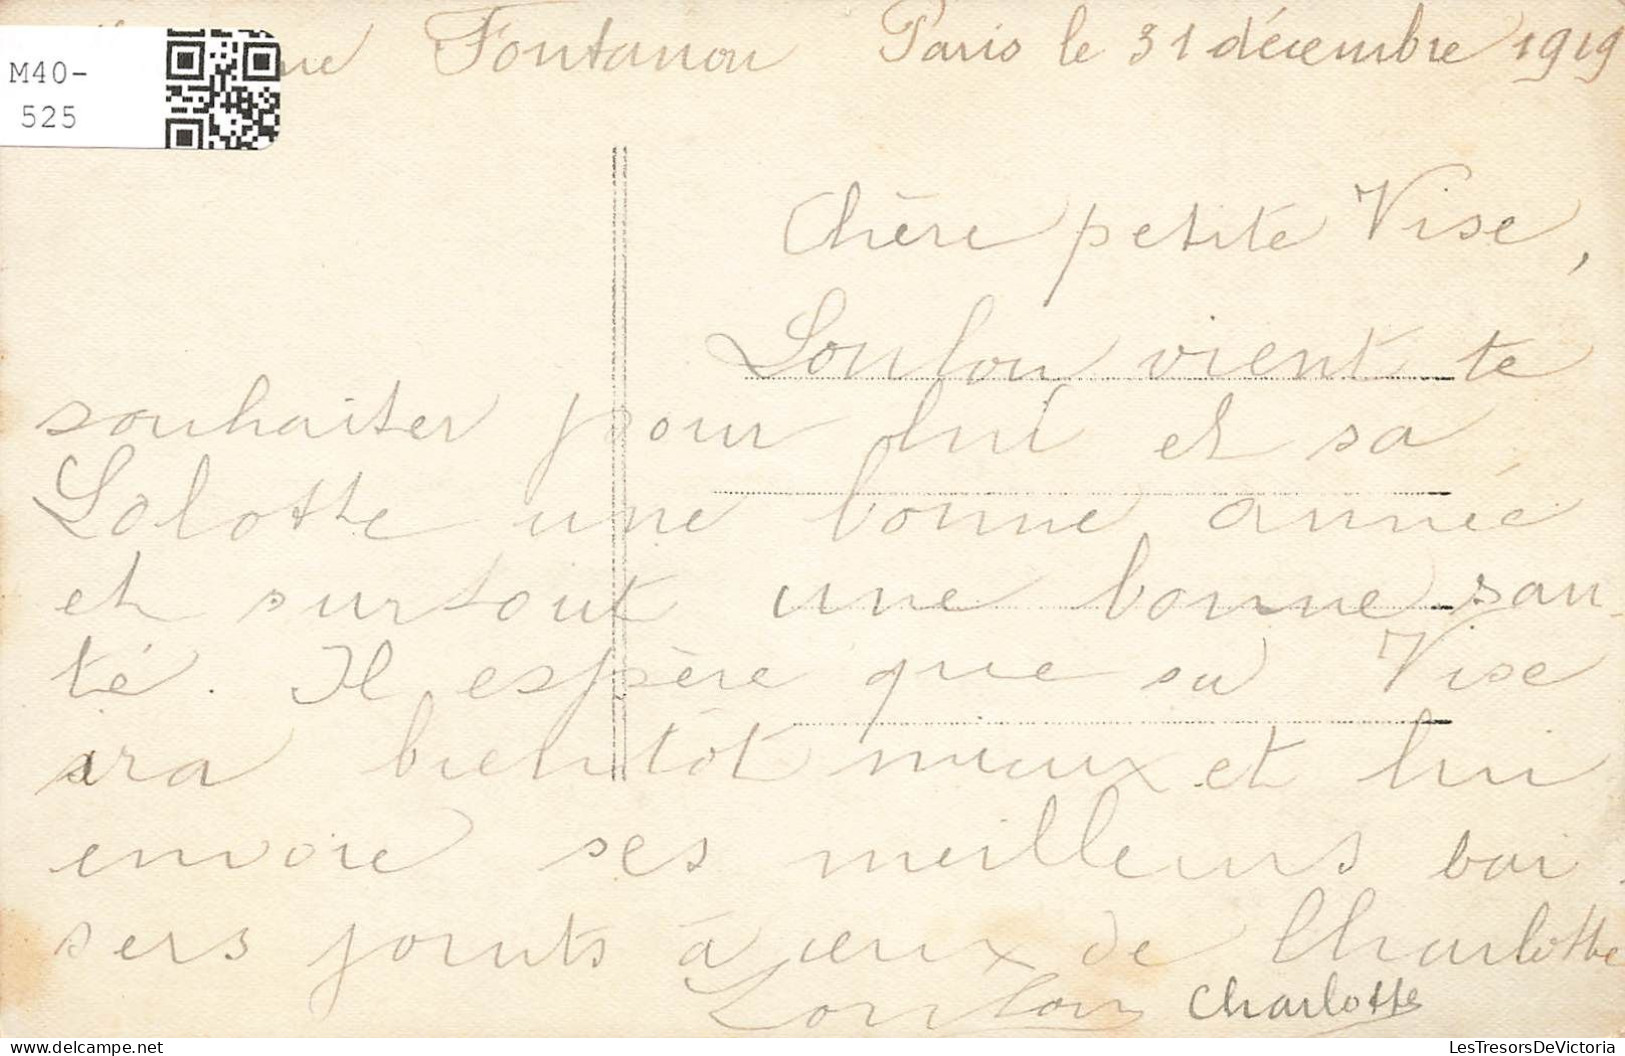 M40-
525
Fontanon Paris le 31 décembre 1919
Chère petite Vise,
Loulou vient te
souhaiter pour lui et sa
Lolotte une bonne année
et surtout une bonne san-
té. Il espère que sa Vise
ira bientôt mieux et lui
envoie ses meilleurs bai-
sers joints à ceux de Charlotte
Loulou Charlotte
LesTresorsDeVictoria